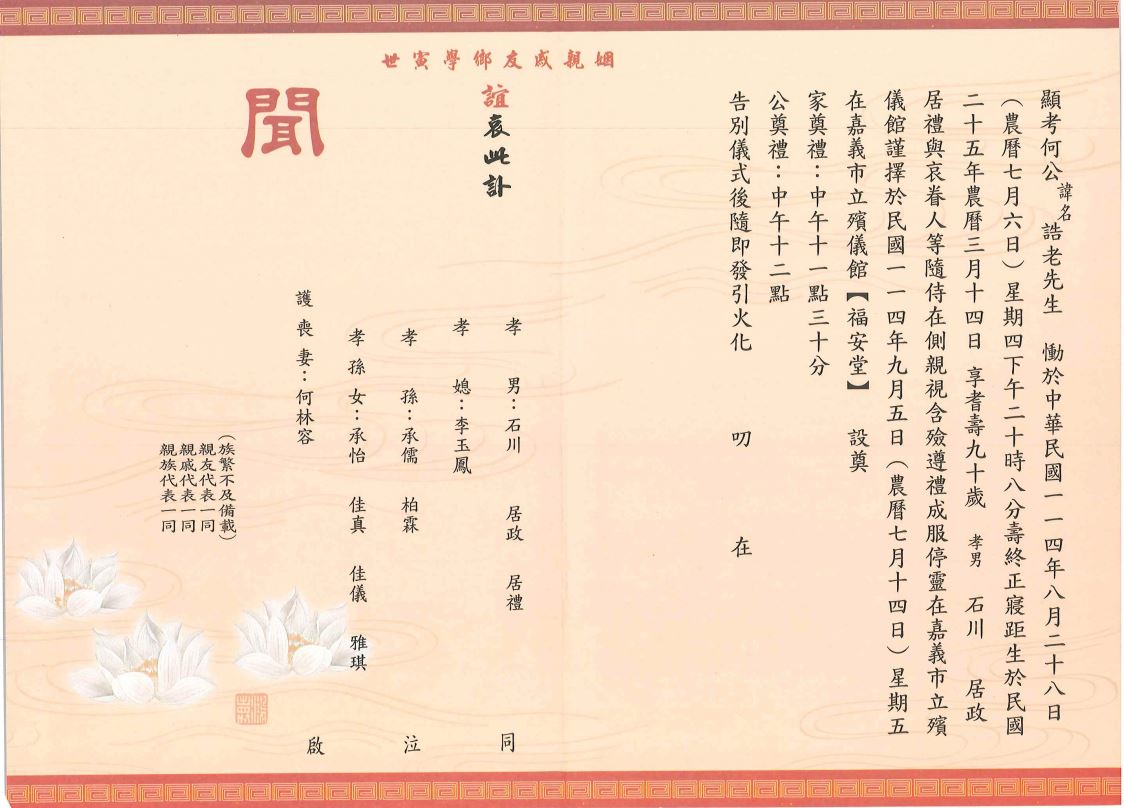 顯考何公諱名誥老先生　慟於中華民國一一四年八月二十八日
（農曆七月六日）星期四下午二十時八分壽終正寢距生於民國
二十五年農曆三月十四日　享耆壽九十歲　孝男　石川　居政
居禮與哀眷人等隨侍在側親視含殮遵禮成服停靈在嘉義市立殯
儀館謹擇於民國一一四年九月五日（農曆七月十四日）星期五
在嘉義市立殯儀館【福安堂】　設奠
家奠禮：中午十一點三十分
公奠禮：中午十二點
告別儀式後隨即發引火化　叨　在
姻親戚友鄉學寅世
誼哀此訃
聞
孝　男：石川　居政　居禮　同
孝　媳：李玉鳳
孝　孫：承儒　柏霖　泣
孝孫女：承怡　佳真　佳儀　雅琪
護喪妻：何林容　啟
（族繁不及備載）
親友代表一同
親戚代表一同
親族代表一同